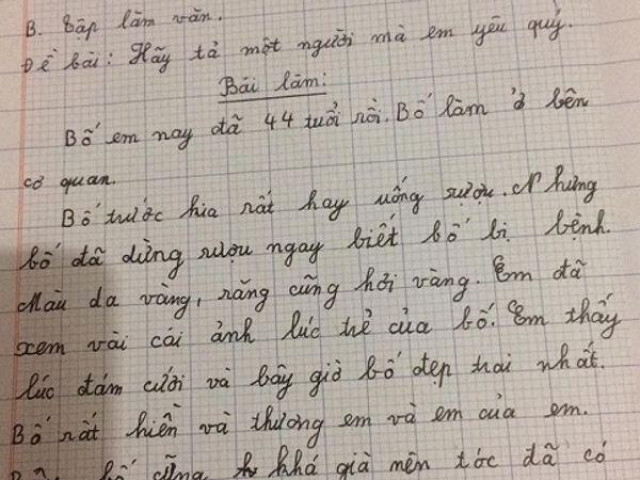 B. Tập làm văn.
Đề bài: Hãy tả một người mà em yêu quý.
Bài làm:
Bố em nay đã 44 tuổi rồi. Bố làm ở bên
cơ quan.
Bố trước kia rất hay uống rượu. Nhưng
bố đã dừng rượu ngay biết bố bị bệnh.
Màu da vàng, răng cũng hơi vàng. Em đã
xem vài cái ảnh lúc trẻ của bố. Em thấy
lúc đám cưới và bây giờ bố đẹp trai nhất.
Bố rất hiền và thương em và em của em.
bố cũng khá già nên tóc đã có